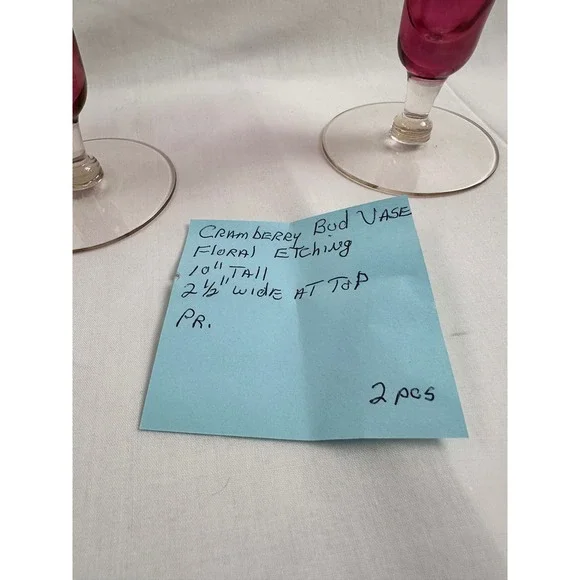 Cranberry Bud Vase
Floral Etching
10" Tall
2 1/2" wide at Top
Pr.
2 pcs